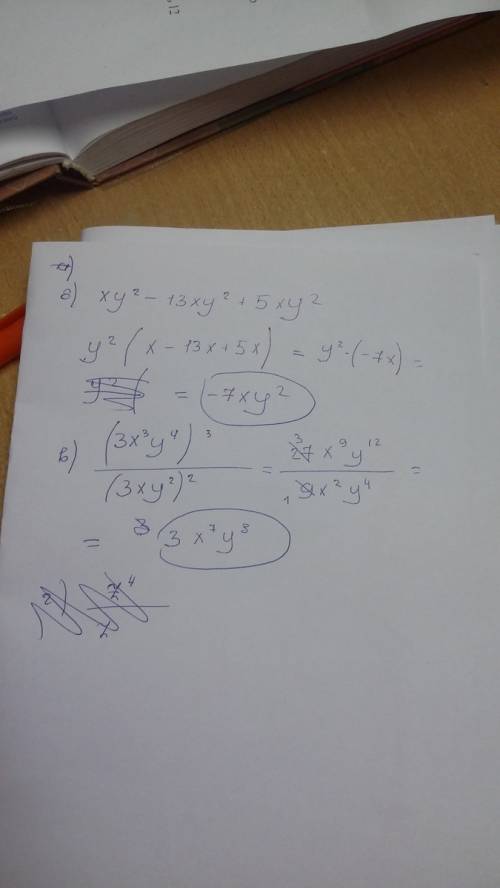 б) xy² - 13xy² + 5xy²
y² ( x - 13x + 5x ) = y² · (-7x) =
= -7xy²
в) (3x³y⁴)³ / (3xy²)² = 27x⁹y¹² / 9x²y⁴ =
= 3x⁷y⁸